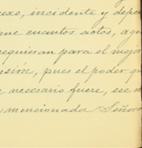 incidente y depen
que cuantos actos, aqu
requieran para el mejor
pues el poder qu
necesario fuere, ese m
mencionada Señora